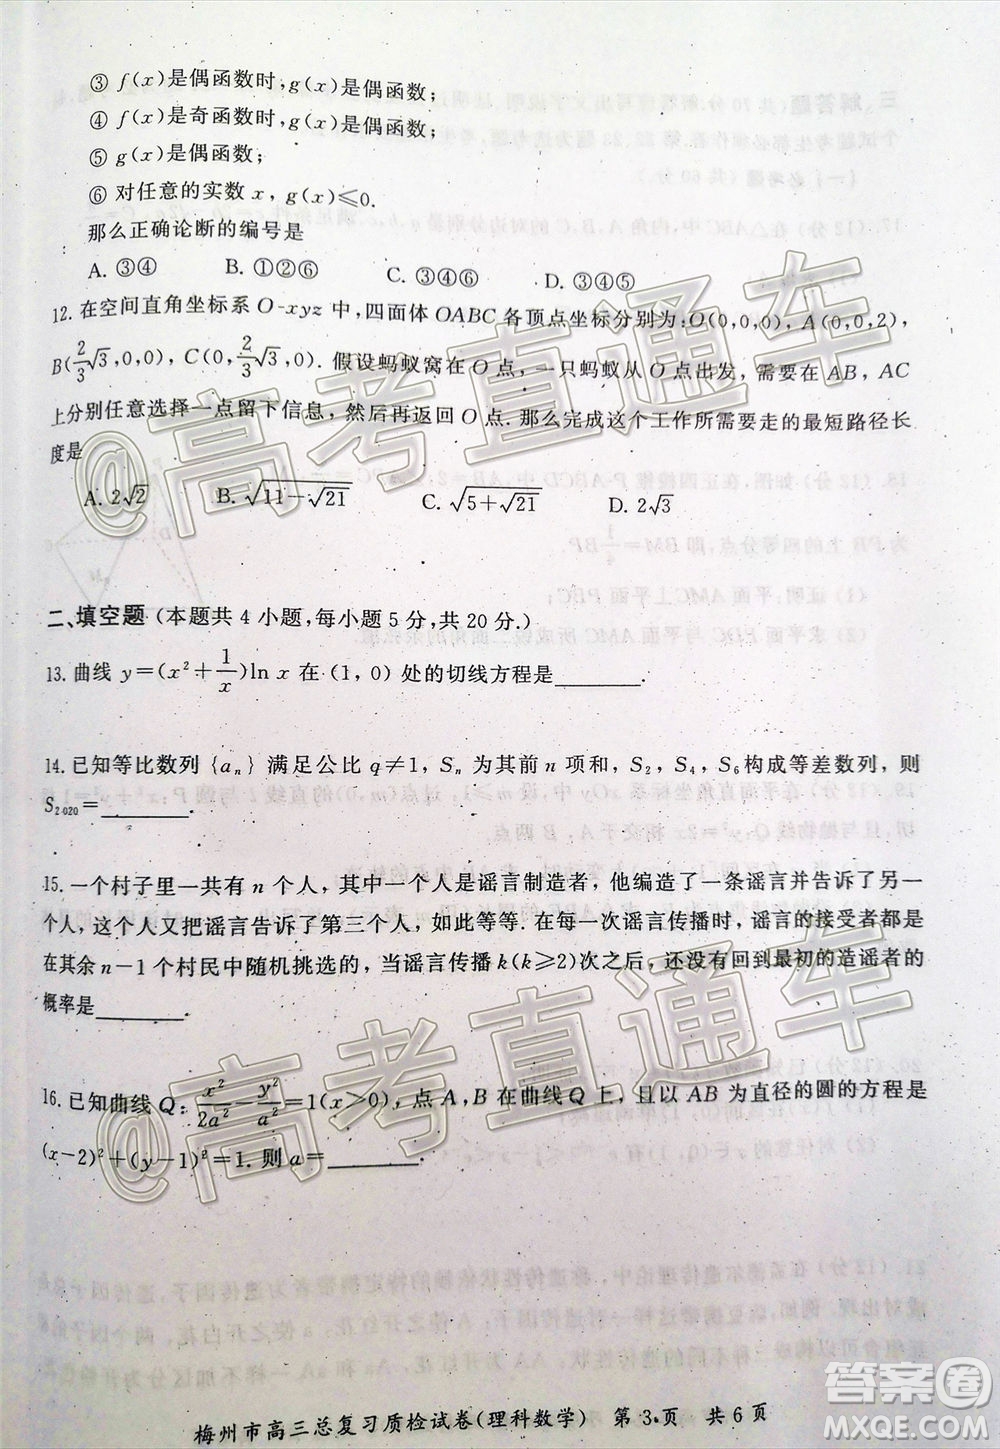 ③ f(x)是偶函数时,g(x)是偶函数;
④ f(x)是奇函数时,g(x)是偶函数;
⑤ g(x)是偶函数;
⑥ 对任意的实数 x, g(x)≤0.
那么正确论断的编号是
A. ③④ B. ①②⑥ C. ③④⑥ D. ③④⑤
12. 在空间直角坐标系 O-xyz 中,四面体 OABC 各顶点坐标分别为:O(0,0,0), A(0,0,2),
B(2/3√3,0,0), C(0,2/3√3,0). 假设蚂蚁窝在 O 点,一只蚂蚁从 O 点出发,需要在 AB, AC
上分别任意选择一点留下信息,然后再返回 O 点. 那么完成这个工作所需要走的最短路径长
度是
A. 2√2 B. √(11-√21) C. √(5+√21) D. 2√3
二、填空题 (本题共 4 小题,每小题 5 分,共 20 分.)
13. 曲线 y=(x²+1/x)ln x 在 (1, 0) 处的切线方程是________.
14. 已知等比数列 {aₙ} 满足公比 q≠1, Sₙ 为其前 n 项和, S₂, S₄, S₆ 构成等差数列, 则
S₂₀₂₀=________.
15. 一个村子里一共有 n 个人, 其中一个人是谣言制造者, 他编造了一条谣言并告诉了另一
个人, 这个人又把谣言告诉了第三个人, 如此等等. 在每一次谣言传播时, 谣言的接受者都是
在其余 n-1 个村民中随机挑选的, 当谣言传播 k(k≥2)次之后, 还没有回到最初的造谣者的
概率是________.
16. 已知曲线 Q: x²/2a²-y²/a²=1(x>0), 点 A, B 在曲线 Q 上, 且以 AB 为直径的圆的方程是
(x-2)²+(y-1)²=1. 则 a=________.
梅州市高三总复习质检试卷(理科数学) 第 3 页 共 6 页
@高考直通车
@高考直通车
答案圈
MXQE.COM